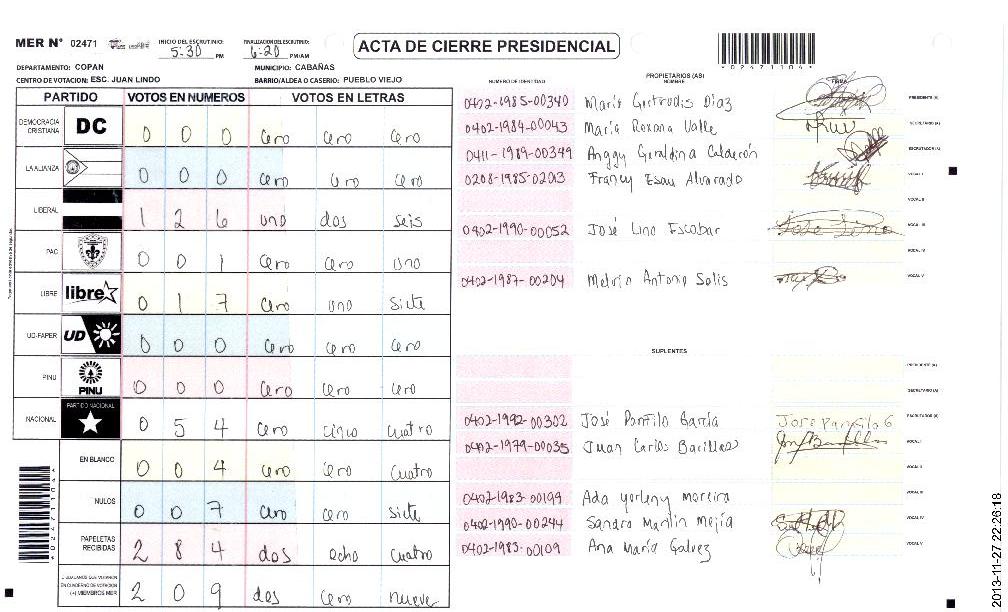 MER N° 02471
INICIO DEL ESCRUTINIO: 5:30 PM
FINALIZACION DEL ESCRUTINIO: 6:20 PM/AM
ACTA DE CIERRE PRESIDENCIAL
*02471104*
DEPARTAMENTO: COPAN
MUNICIPIO: CABAÑAS
CENTRO DE VOTACION: ESC. JUAN LINDO
BARRIO/ALDEA O CASERIO: PUEBLO VIEJO
PARTIDO VOTOS EN NUMEROS VOTOS EN LETRAS
DEMOCRACIA CRISTIANA DC 0 0 0 Cero Cero Cero
LA ALIANZA 0 0 0 Cero Cero Cero
LIBERAL 1 2 6 uno dos seis
PAC 0 0 1 Cero Cero uno
LIBRE libre 0 1 7 Cero uno siete
UD-FAPER UD 0 0 0 Cero Cero Cero
PINU PINU 0 0 0 Cero Cero Cero
NACIONAL PARTIDO NACIONAL 0 5 4 Cero cinco cuatro
EN BLANCO 0 0 4 Cero Cero cuatro
NULOS 0 0 7 Cero Cero siete
PAPELETAS RECIBIDAS 2 8 4 dos ocho cuatro
CIUDADANOS QUE VOTARON EN CUADERNO DE VOTACION (+) MIEMBROS MER 2 0 9 dos cero nueve
*02471104*
NUMERO DE IDENTIDAD
PROPIETARIOS (AS)
NOMBRE
FIRMA
0402-1985-00340 María Gertrudis Díaz PRESIDENTE (A)
0402-1984-00043 María Roxana Valle SECRETARIO (A)
0411-1989-00349 Anggy Geraldina Calderón ESCRUTADOR (A)
0208-1985-02013 Francy Esau Alvarado VOCAL I
VOCAL II
0402-1990-00052 José Lino Escobar VOCAL III
VOCAL IV
0402-1987-00204 Melvin Antonio Solis VOCAL V
SUPLENTES
PRESIDENTE (A)
SECRETARIO (A)
0402-1992-00302 José Panfilo García Jose Panfilo G ESCRUTADOR (A)
0402-1979-00035 Juan Carlos Barillas VOCAL I
VOCAL II
0402-1983-00199 Ada yorleny moreira VOCAL III
0402-1990-00244 Sandra Marlin Mejía VOCAL IV
0402-1983-00109 Ana María Galvez VOCAL V
2013-11-27 22:26:18